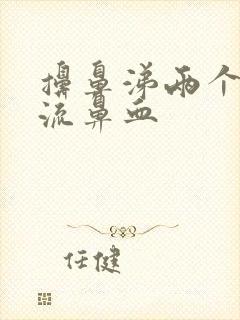 擤鼻涕两个
流鼻血
任健